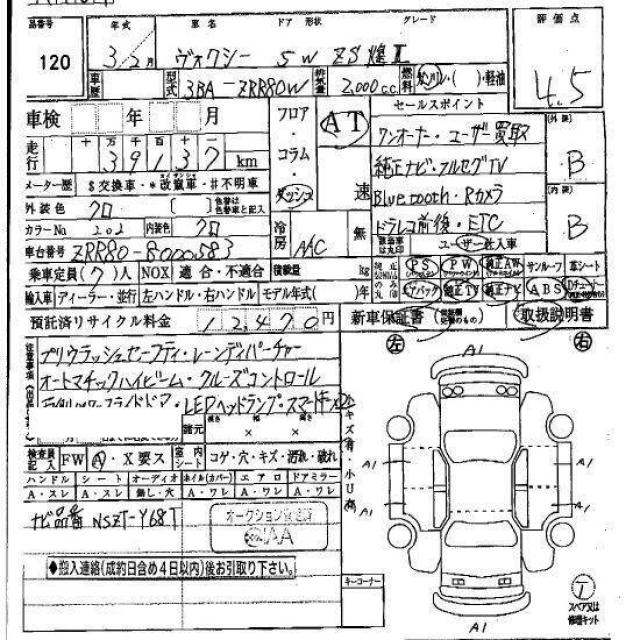 品番号 年式 車名 ドア 形状 グレード 評価点
120 3/2月 ヴォクシー 5W ZS煌Ⅱ 4.5
車歴 型式 3BA-ZRR80W 排気量 2,000cc 燃料 ガソリン・( )・軽油
車検 年 月 フロア・コラム・ダッシュ AT 速
セールスポイント
ワンオーナー・ユーザー買取
純正ナビ・フルセグTV
Bluetooth・Rカメラ
ドラレコ前後・ETC
外装 B
内装 B
走行 十万千百十 39137 km
メーター歴 $交換車・*改竄車・#不明車
外装色 クロ [ ] 色替は色替車と記入
カラーNo 202 内装色 クロ 冷房 A/C 無
車台番号 ZRR80-8000583
ユーザー社入車
乗車定員(7)人 NOX 適合・不適合 積載量 kg
PS PW 純正AW サンルーフ 革シート
輸入車 ディーラー・並行 左ハンドル・右ハンドル モデル年式( )年
エアバック 純正TV 純正ナビ ABS
預託済リサイクル料金 12,470円 新車保証書 取扱説明書
プリクラッシュセーフティ・レーンディパーチャー
オートマチックハイビーム・クルーズコントロール
LEDヘッドランプ・スマートキー×2
諸元 長さ 幅 高さ
× ×
検査員記入 FW A・X要ス 室内シート コゲ・穴・キズ・汚れ・破れ
ハンドル シート オーディオ ホイル(カバー) エアロ ドアミラー
A・スレ A・スレ 無し・穴 A・ワレ A・ワレ A・ワレ
ナビ品番 NSZT-Y68T
オークション会場
JAA
◆搬入連絡(成約日含め4日以内)後お引取り下さい。
キーコーナー
左 A1 右
小キズ有 小U有
A1 A1
A1 A1
A1
T
スペア又は修理キット